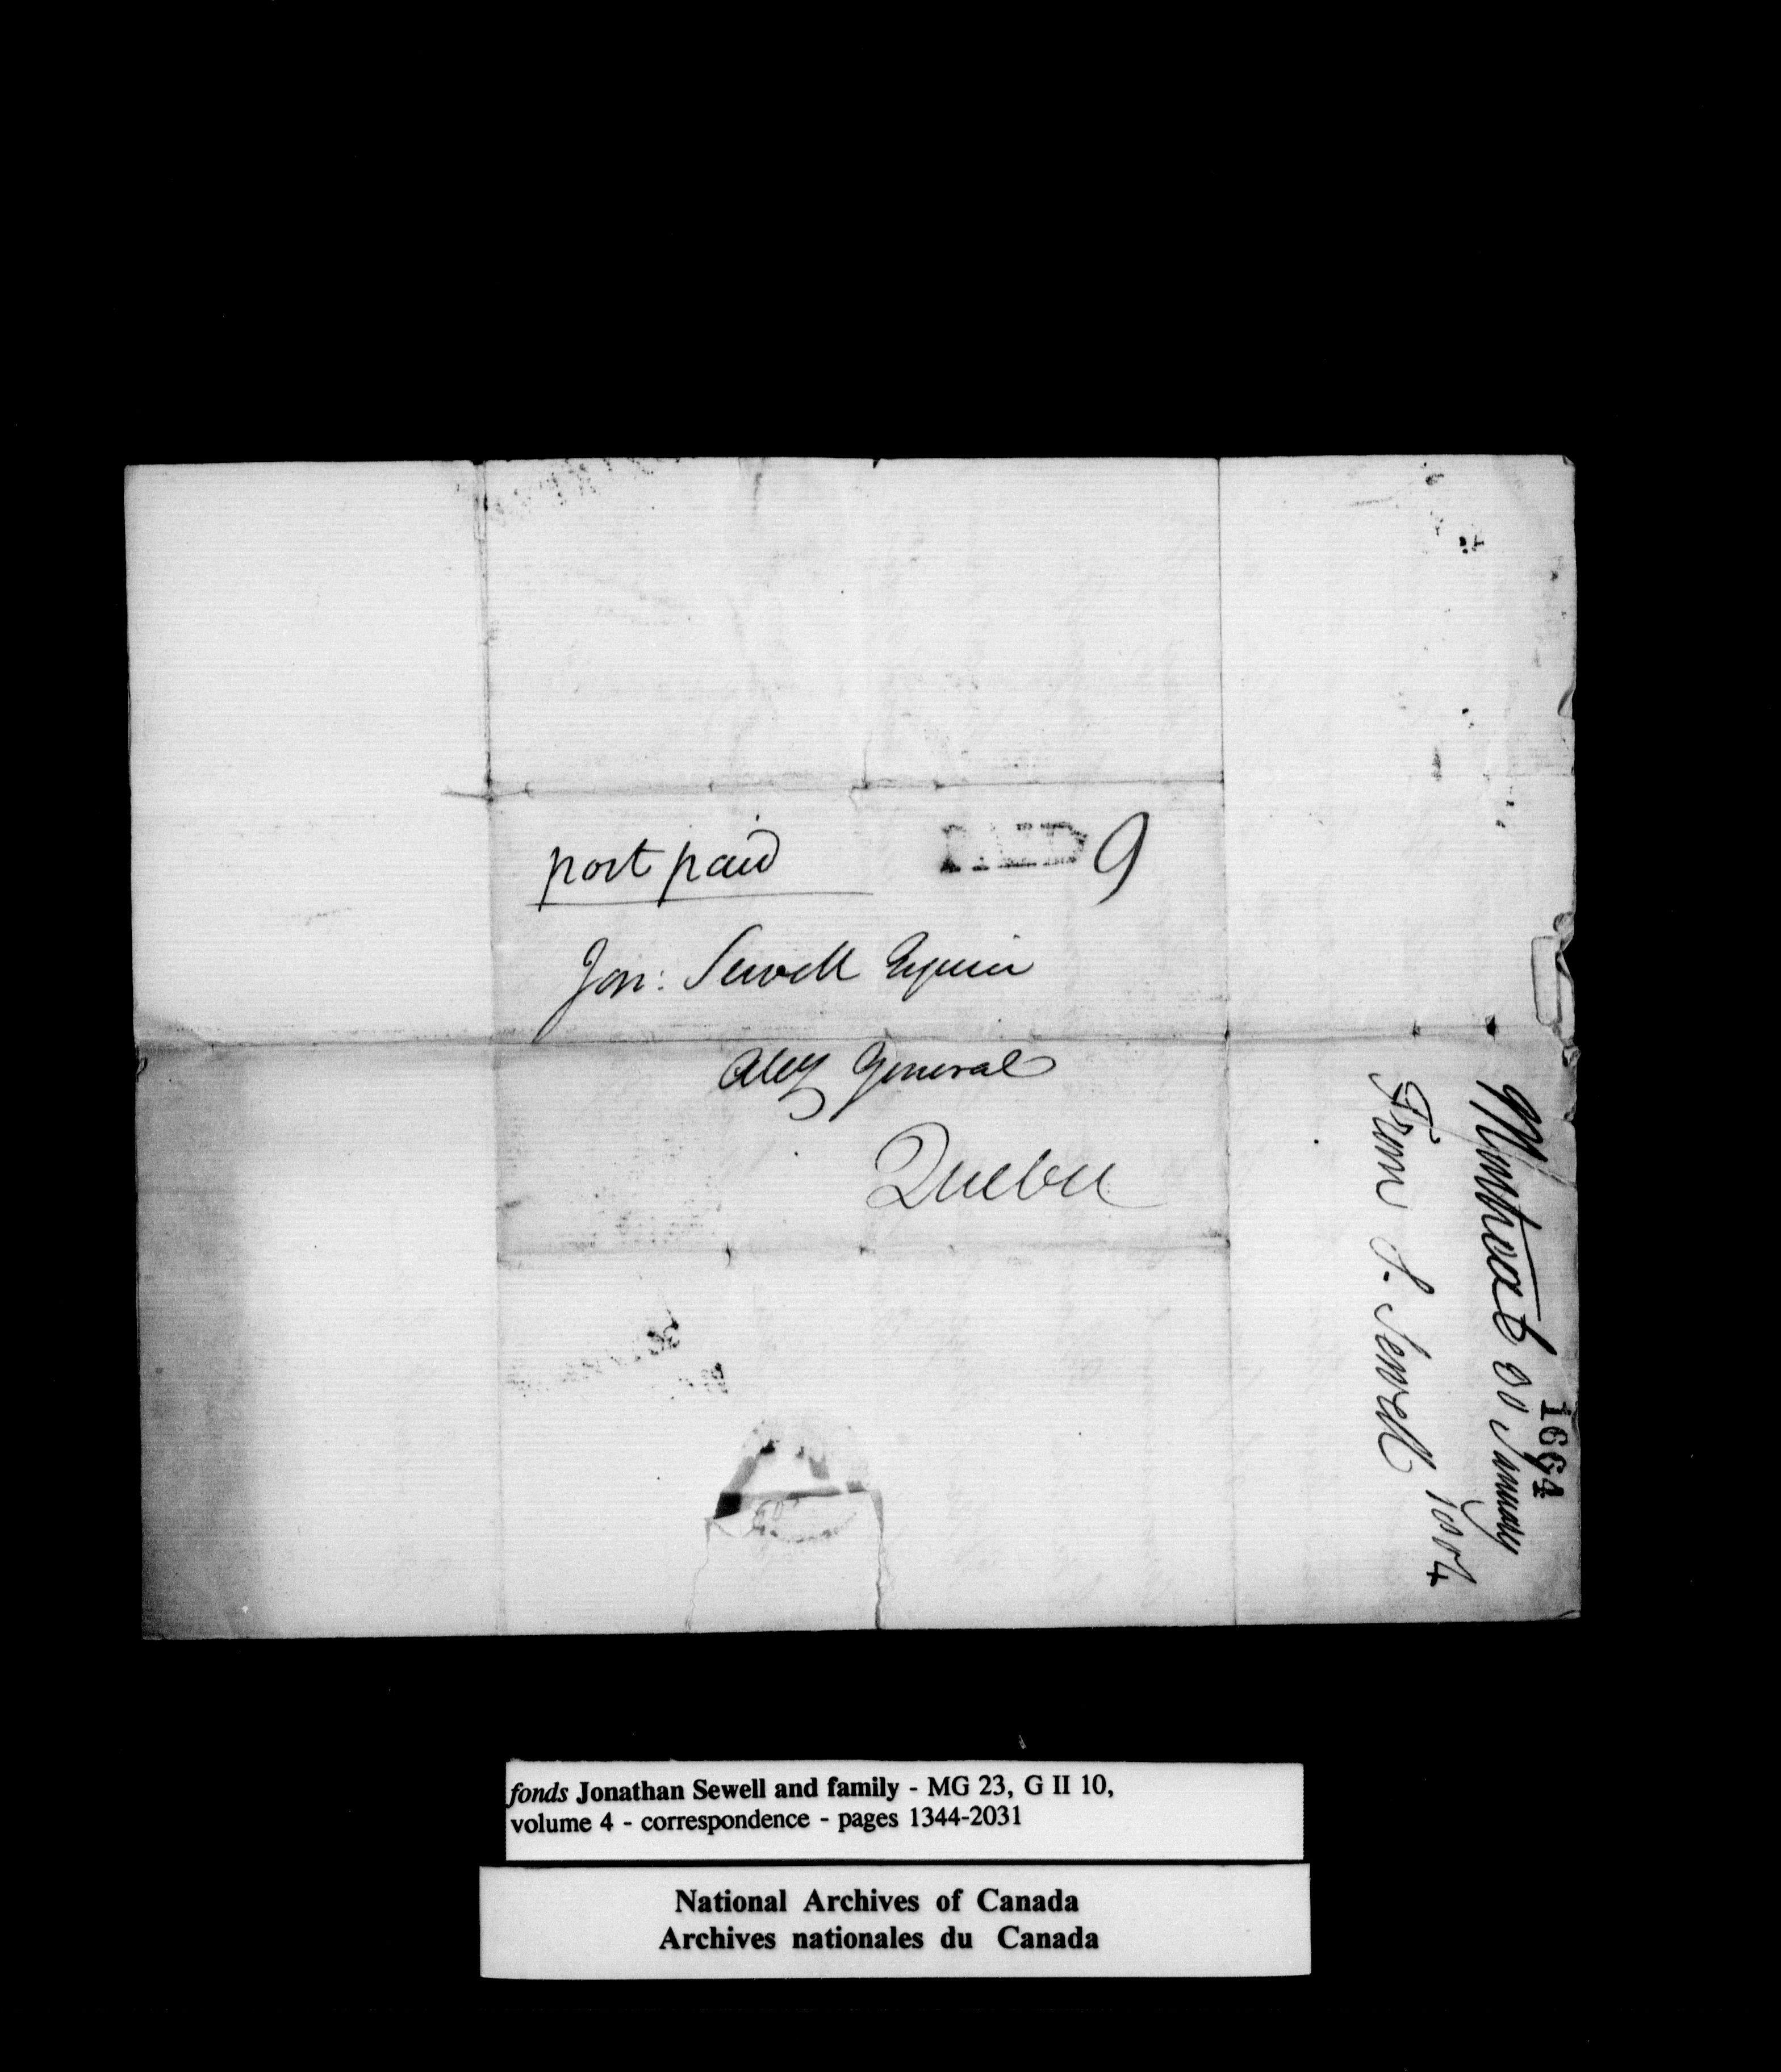 post paid PAID 9
Jon: Sewell Esquire
Atty General
Quebec
1664
Montreal 30 January
From S. Sewell 1804
fonds Jonathan Sewell and family - MG 23, G II 10,
volume 4 - correspondence - pages 1344-2031
National Archives of Canada
Archives nationales du Canada